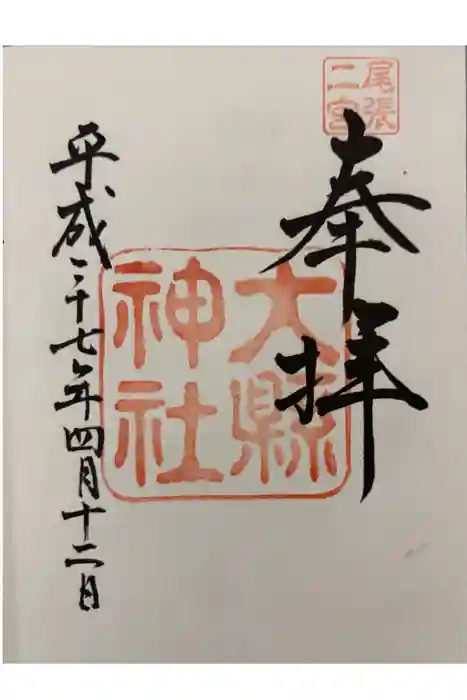 尾張
二宮
奉拝
大縣
神社
平成二十七年四月十二日